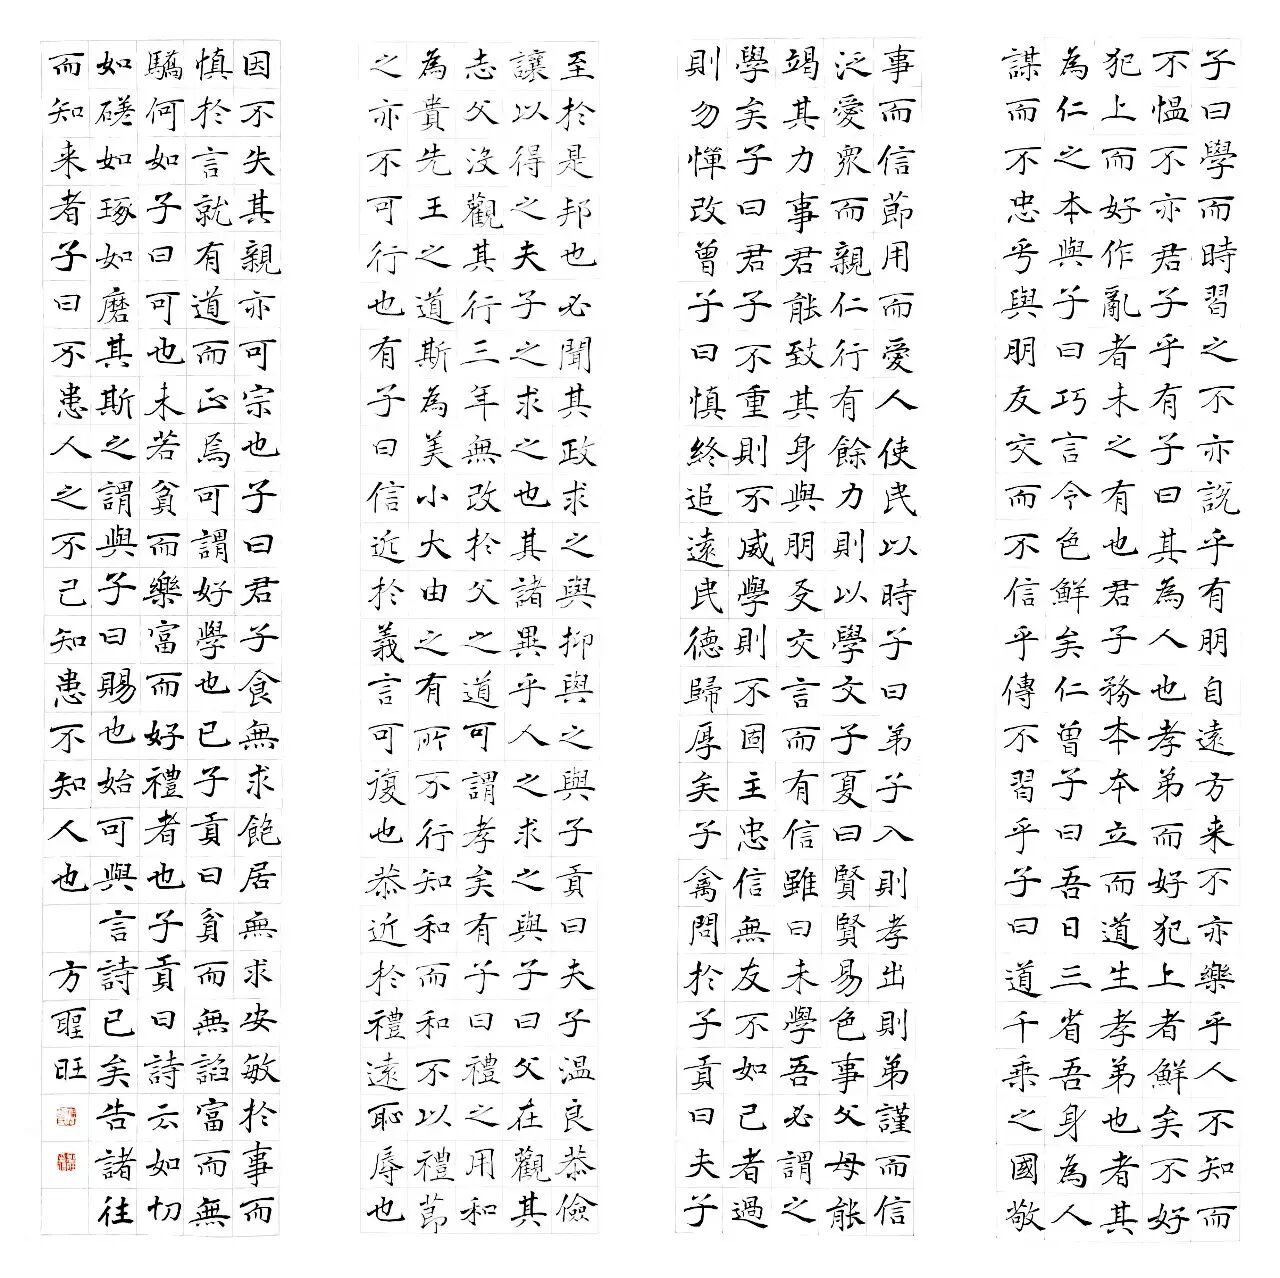 子曰學而時習之不亦説乎有朋自遠方来不亦樂乎人不知而
不愠不亦君子乎有子曰其為人也孝弟而好犯上者鮮矣不好
犯上而好作亂者未之有也君子務本本立而道生孝弟也者其
為仁之本與子曰巧言令色鮮矣仁曾子曰吾日三省吾身為人
謀而不忠乎與朋友交而不信乎傳不習乎子曰道千乘之國敬
事而信節用而愛人使民以時子曰弟子入則孝出則弟謹而信
泛愛衆而親仁行有餘力則以學文子夏曰賢賢易色事父母能
竭其力事君能致其身與朋友交言而有信雖曰未學吾必謂之
學矣子曰君子不重則不威學則不固主忠信無友不如己者過
則勿憚改曾子曰慎終追遠民德歸厚矣子禽問於子貢曰夫子
至於是邦也必聞其政求之與抑與之與子貢曰夫子温良恭儉
讓以得之夫子之求之也其諸異乎人之求之與子曰父在觀其
志父沒觀其行三年無改於父之道可謂孝矣有子曰禮之用和
為貴先王之道斯為美小大由之有所不行知和而和不以禮節
之亦不可行也有子曰信近於義言可復也恭近於禮遠恥辱也
因不失其親亦可宗也子曰君子食無求飽居無求安敏於事而
慎於言就有道而正焉可謂好學也已子貢曰貧而無諂富而無
驕何如子曰可也未若貧而樂富而好禮者也子貢曰詩云如切
如磋如琢如磨其斯之謂與子曰賜也始可與言詩已矣告諸往
而知来者子曰不患人之不己知患不知人也 方聖旺